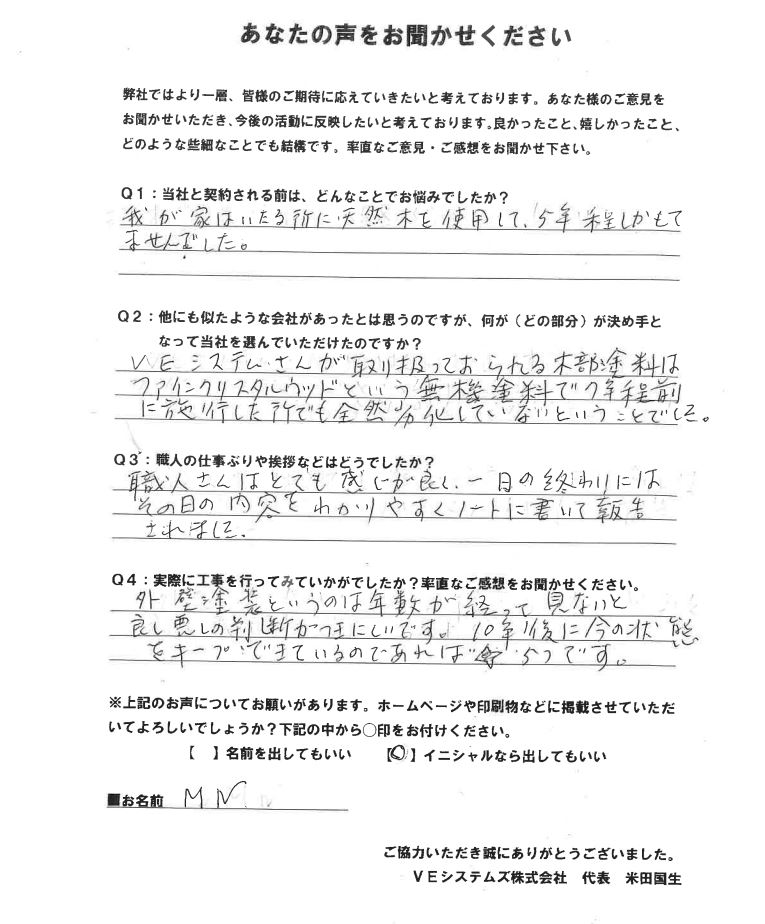 あなたの声をお聞かせください
弊社ではより一層、皆様のご期待に応えていきたいと考えております。あなた様のご意見を
お聞かせいただき、今後の活動に反映したいと考えております。良かったこと、嬉しかったこと、
どのような些細なことでも結構です。率直なご意見・ご感想をお聞かせ下さい。
Q1：当社と契約される前は、どんなことでお悩みでしたか？
我が家はいたる所に天然木を使用して、5年程しかもて
ませんでした。
Q2：他にも似たような会社があったとは思うのですが、何が（どの部分）が決め手と
なって当社を選んでいただけたのですか？
VEシステムさんが取り扱っておられる木部塗料は
ファインクリスタルウッドという無機塗料で7年程前
に施行した所でも全然劣化していないということでした。
Q3：職人の仕事ぶりや挨拶などはどうでしたか？
職人さんはとても感じが良く、一日の終わりには
その日の内容をわかりやすくノートに書いて報告
されました。
Q4：実際に工事を行ってみていかがでしたか？率直なご感想をお聞かせください。
外壁塗装というのは年数が経って見ないと
良し悪しの判断がつきにくいです。10年後に今の状態
をキープできているのであれば5つです。
※上記のお声についてお願いがあります。ホームページや印刷物などに掲載させていただ
いてよろしいでしょうか？下記の中から○印をお付けください。
【 】名前を出してもいい 【○】イニシャルなら出してもいい
■お名前 M M
ご協力いただき誠にありがとうございました。
VEシステムズ株式会社 代表 米田国生